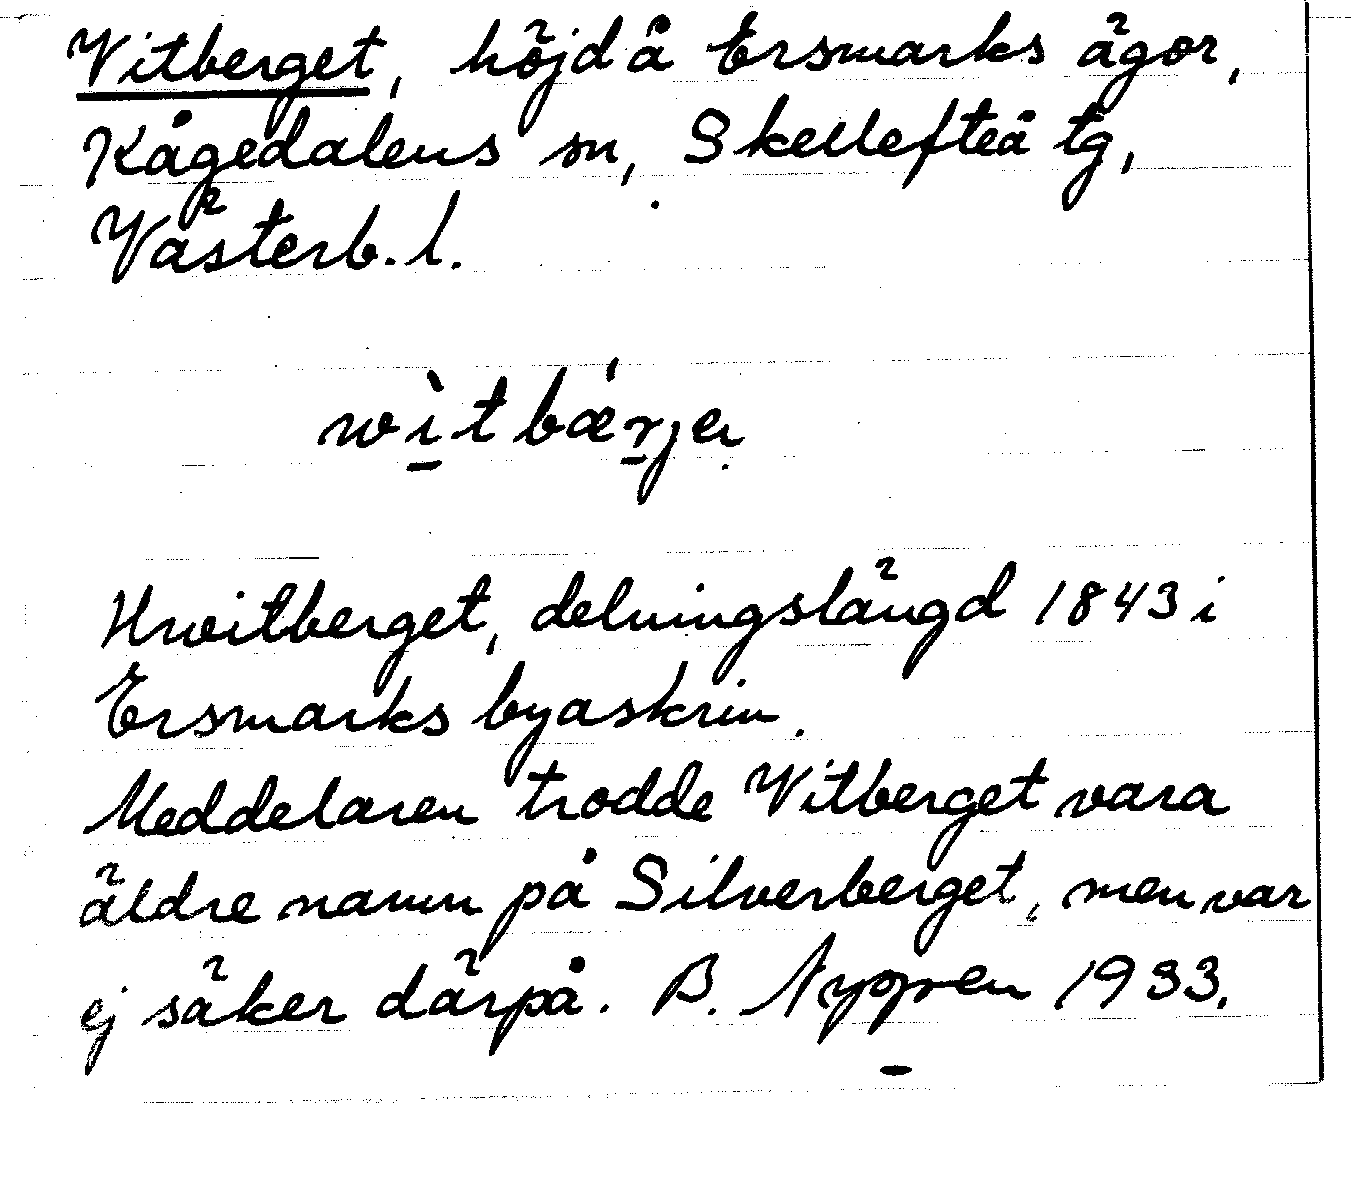 Vitberget, höjd å Ersmarks ägor,
Kågedalens sn, Skellefteå tg,
Västerb. l.
wìtbǽrja
Hwitberget, delningslängd 1843 i
Ersmarks byaskrin.
Meddelaren trodde Vitberget vara
äldre namn på Silverberget, men var
ej säker därpå. B. Nygren 1933.